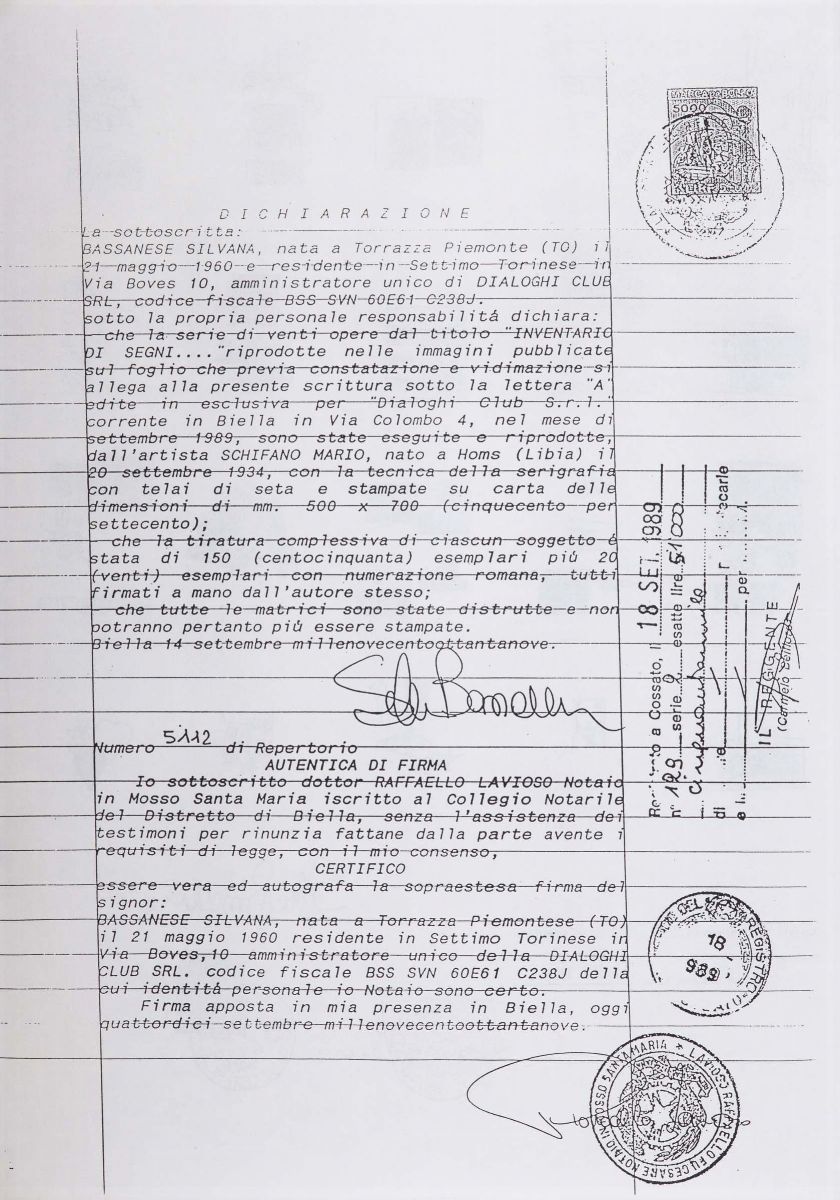 MARCA DA BOLLO
5000
DICHIARAZIONE
La sottoscritta:
BASSANESE SILVANA, nata a Torrazza Piemonte (TO) il
21 maggio 1960 e residente in Settimo Torinese in
Via Boves 10, amministratore unico di DIALOGHI CLUB
SRL, codice fiscale BSS SVN 60E61 C238J.
sotto la propria personale responsabilitá dichiara:
- che la serie di venti opere dal titolo "INVENTARIO
DI SEGNI...."riprodotte nelle immagini pubblicate
sul foglio che previa constatazione e vidimazione si
allega alla presente scrittura sotto la lettera "A"
edite in esclusiva per "Dialoghi Club S.r.l."
corrente in Biella in Via Colombo 4, nel mese di
settembre 1989, sono state eseguite e riprodotte,
dall'artista SCHIFANO MARIO, nato a Homs (Libia) il
20 settembre 1934, con la tecnica della serigrafia
con telai di seta e stampate su carta delle
dimensioni di mm. 500 x 700 (cinquecento per
settecento);
- che la tiratura complessiva di ciascun soggetto é
stata di 150 (centocinquanta) esemplari piú 20
(venti) esemplari con numerazione romana, tutti
firmati a mano dall'autore stesso;
- che tutte le matrici sono state distrutte e non
potranno pertanto piú essere stampate.
Biella 14 settembre millenovecentoottantanove.
Numero 5112 di Repertorio
AUTENTICA DI FIRMA
Io sottoscritto dottor RAFFAELLO LAVIOSO Notaio
in Mosso Santa Maria iscritto al Collegio Notarile
del Distretto di Biella, senza l'assistenza dei
testimoni per rinunzia fattane dalla parte avente i
requisiti di legge, con il mio consenso,
CERTIFICO
essere vera ed autografa la sopraestesa firma del
signor:
BASSANESE SILVANA, nata a Torrazza Piemontese (TO)
il 21 maggio 1960 residente in Settimo Torinese in
Via Boves,10 amministratore unico della DIALOGHI
CLUB SRL. codice fiscale BSS SVN 60E61 C238J della
cui identitá personale io Notaio sono certo.
Firma apposta in mia presenza in Biella, oggi
quattordici settembre millenovecentoottantanove.
a Cossato, il 18 SET. 1989
n° 129 serie esatte lire 51000
di
e per
IL REGGENTE
REGISTRO
18
989
LAVIOSO RAFFAELLO FU CESARE NOTAIO IN MOSSO SANTA MARIA